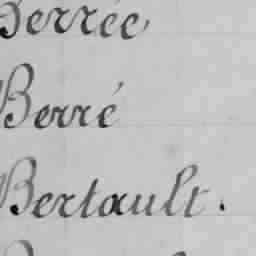 Derrée,
Berré
Bertault.